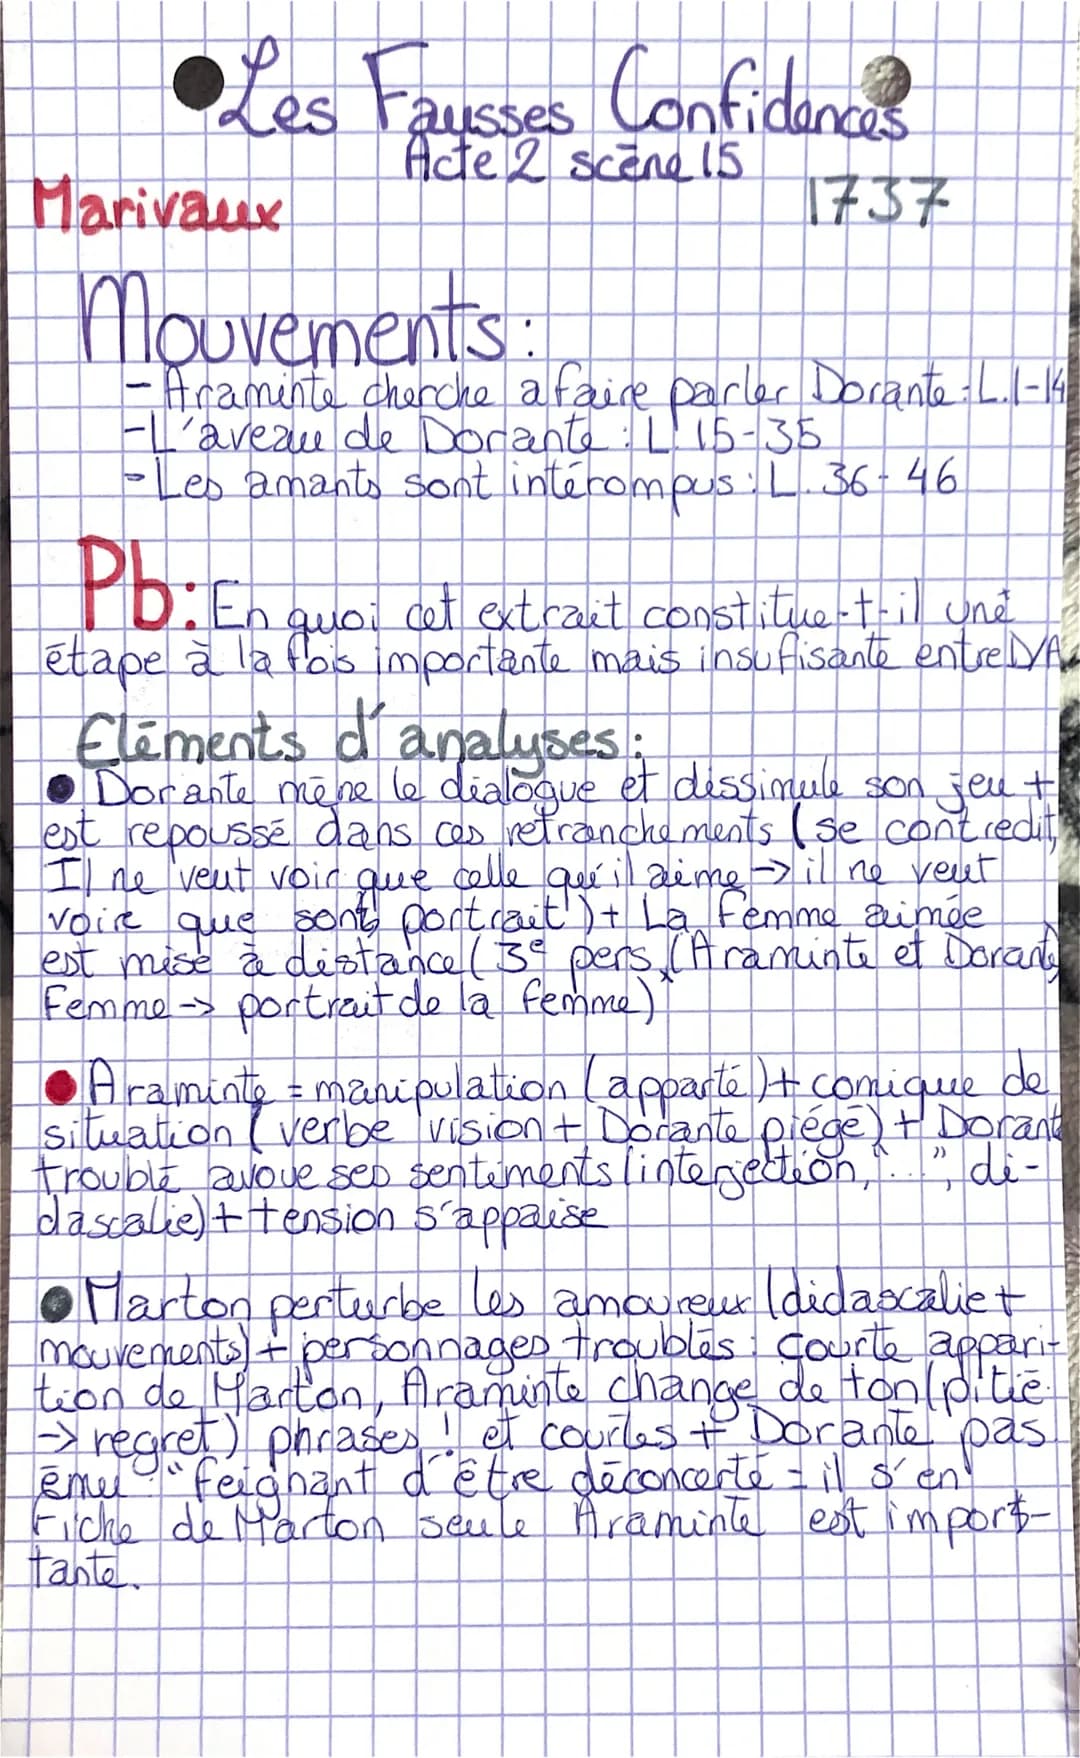 Les Fausses Confidences
Acte 2 scène 15
Marivaux 1737
Mouvements:
- Araminte cherche a faire parler Dorante: L.1-14
- L'aveau de Dorante: L 15-35
- Les amants sont intérompus: L. 36-46
Pb: En quoi cet extrait constitue-t-il une
étape à la fois importante mais insufisante entre D/A
Eléments d'analyses:
Dorante mène le dialogue et dissimule son jeu +
est repoussé dans ces retranchements (se contredit,
Il ne veut voir que celle qu'il aime -> il ne veut
voire que sont portrait) + La femme aimée
est mise à distance (3e pers. (Araminte et Dorante)
Femme -> portrait de la femme)
Araminte = manipulation (apparté) + comique de
situation (verbe vision + Dorante piégé) + Dorant
troublé avoue ses sentiments (interjection, "...", di-
dascalie) + tension s'appaise
Marton perturbe les amoureux (didascalie +
mouvements) + personnages troublés: courte appari-
tion de Marton, Araminte change de ton (pitié
-> regret) phrases ! et courtes + Dorante pas
ému: "feignant d'être déconcerté = il s'en
fiche de Marton seule Araminte est impor-
tante.